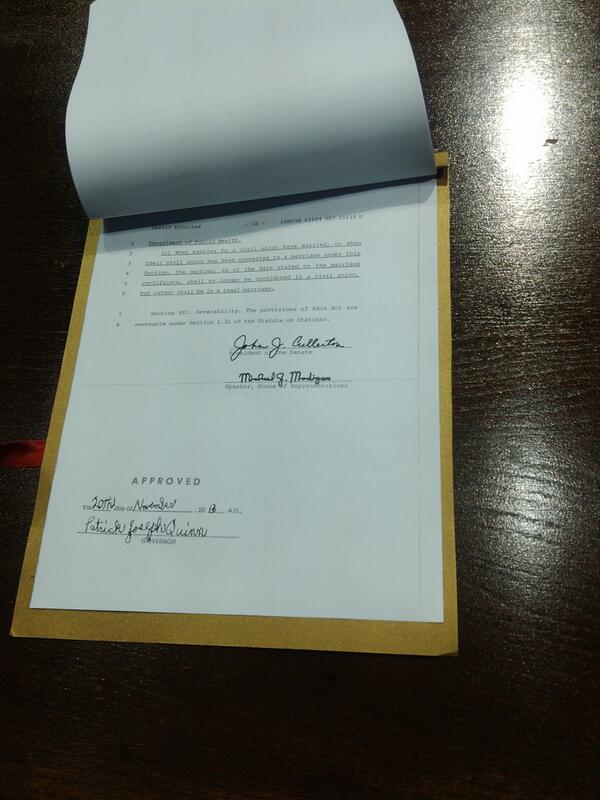 Enrolled
- 12 -
1 Department of Public Health.
2 (c) When parties to a civil union have married, or when
3 their civil union has been converted to a marriage under this
4 Section, the parties, as of the date stated on the marriage
5 certificate, shall no longer be considered in a civil union,
6 but rather shall be in a legal marriage.
7 Section 997. Severability. The provisions of this Act are
8 severable under Section 1.31 of the Statute on Statutes.
John J. Cullerton
President of the Senate
Michael J. Madigan
Speaker, House of Representatives
APPROVED
this 20th day of November, 2013 A.D.,
Patrick Joseph Quinn
GOVERNOR